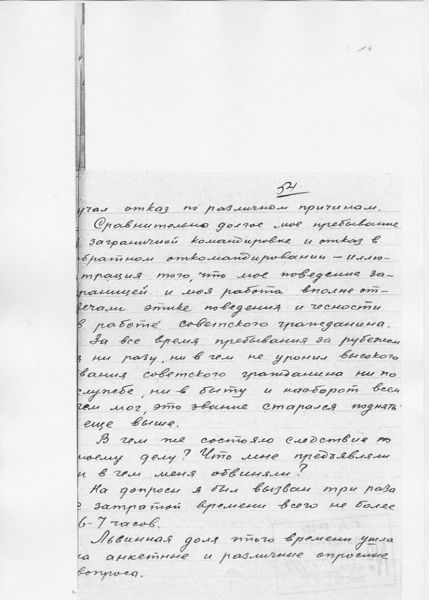 54
учал отказ по различным причинам.
Сравнительно долгое мое пребывание
заграничной командировке и отказ в
братном откомандировании – иллю-
трация того, что мое поведение за-
раницей и моя работа вполне от-
вечали этике поведения и чесности
в работе советского гражданина.
За все время пребывания за рубежом
я ни разу, ни в чем не уронил высокого
звания советского гражданина ни по
службе, ни в быту и наоборот всем
чем мог, это звание старался поднять
еще выше.
В чем же состояло следствие по
моему делу? Что мне предъявляли
и в чем меня обвиняли?
На допросы я был вызван три раза
с затратой времени всего не более
6-7 часов.
Львинная доля этого времени ушла
на анкетные и различные опросные
вопроса.